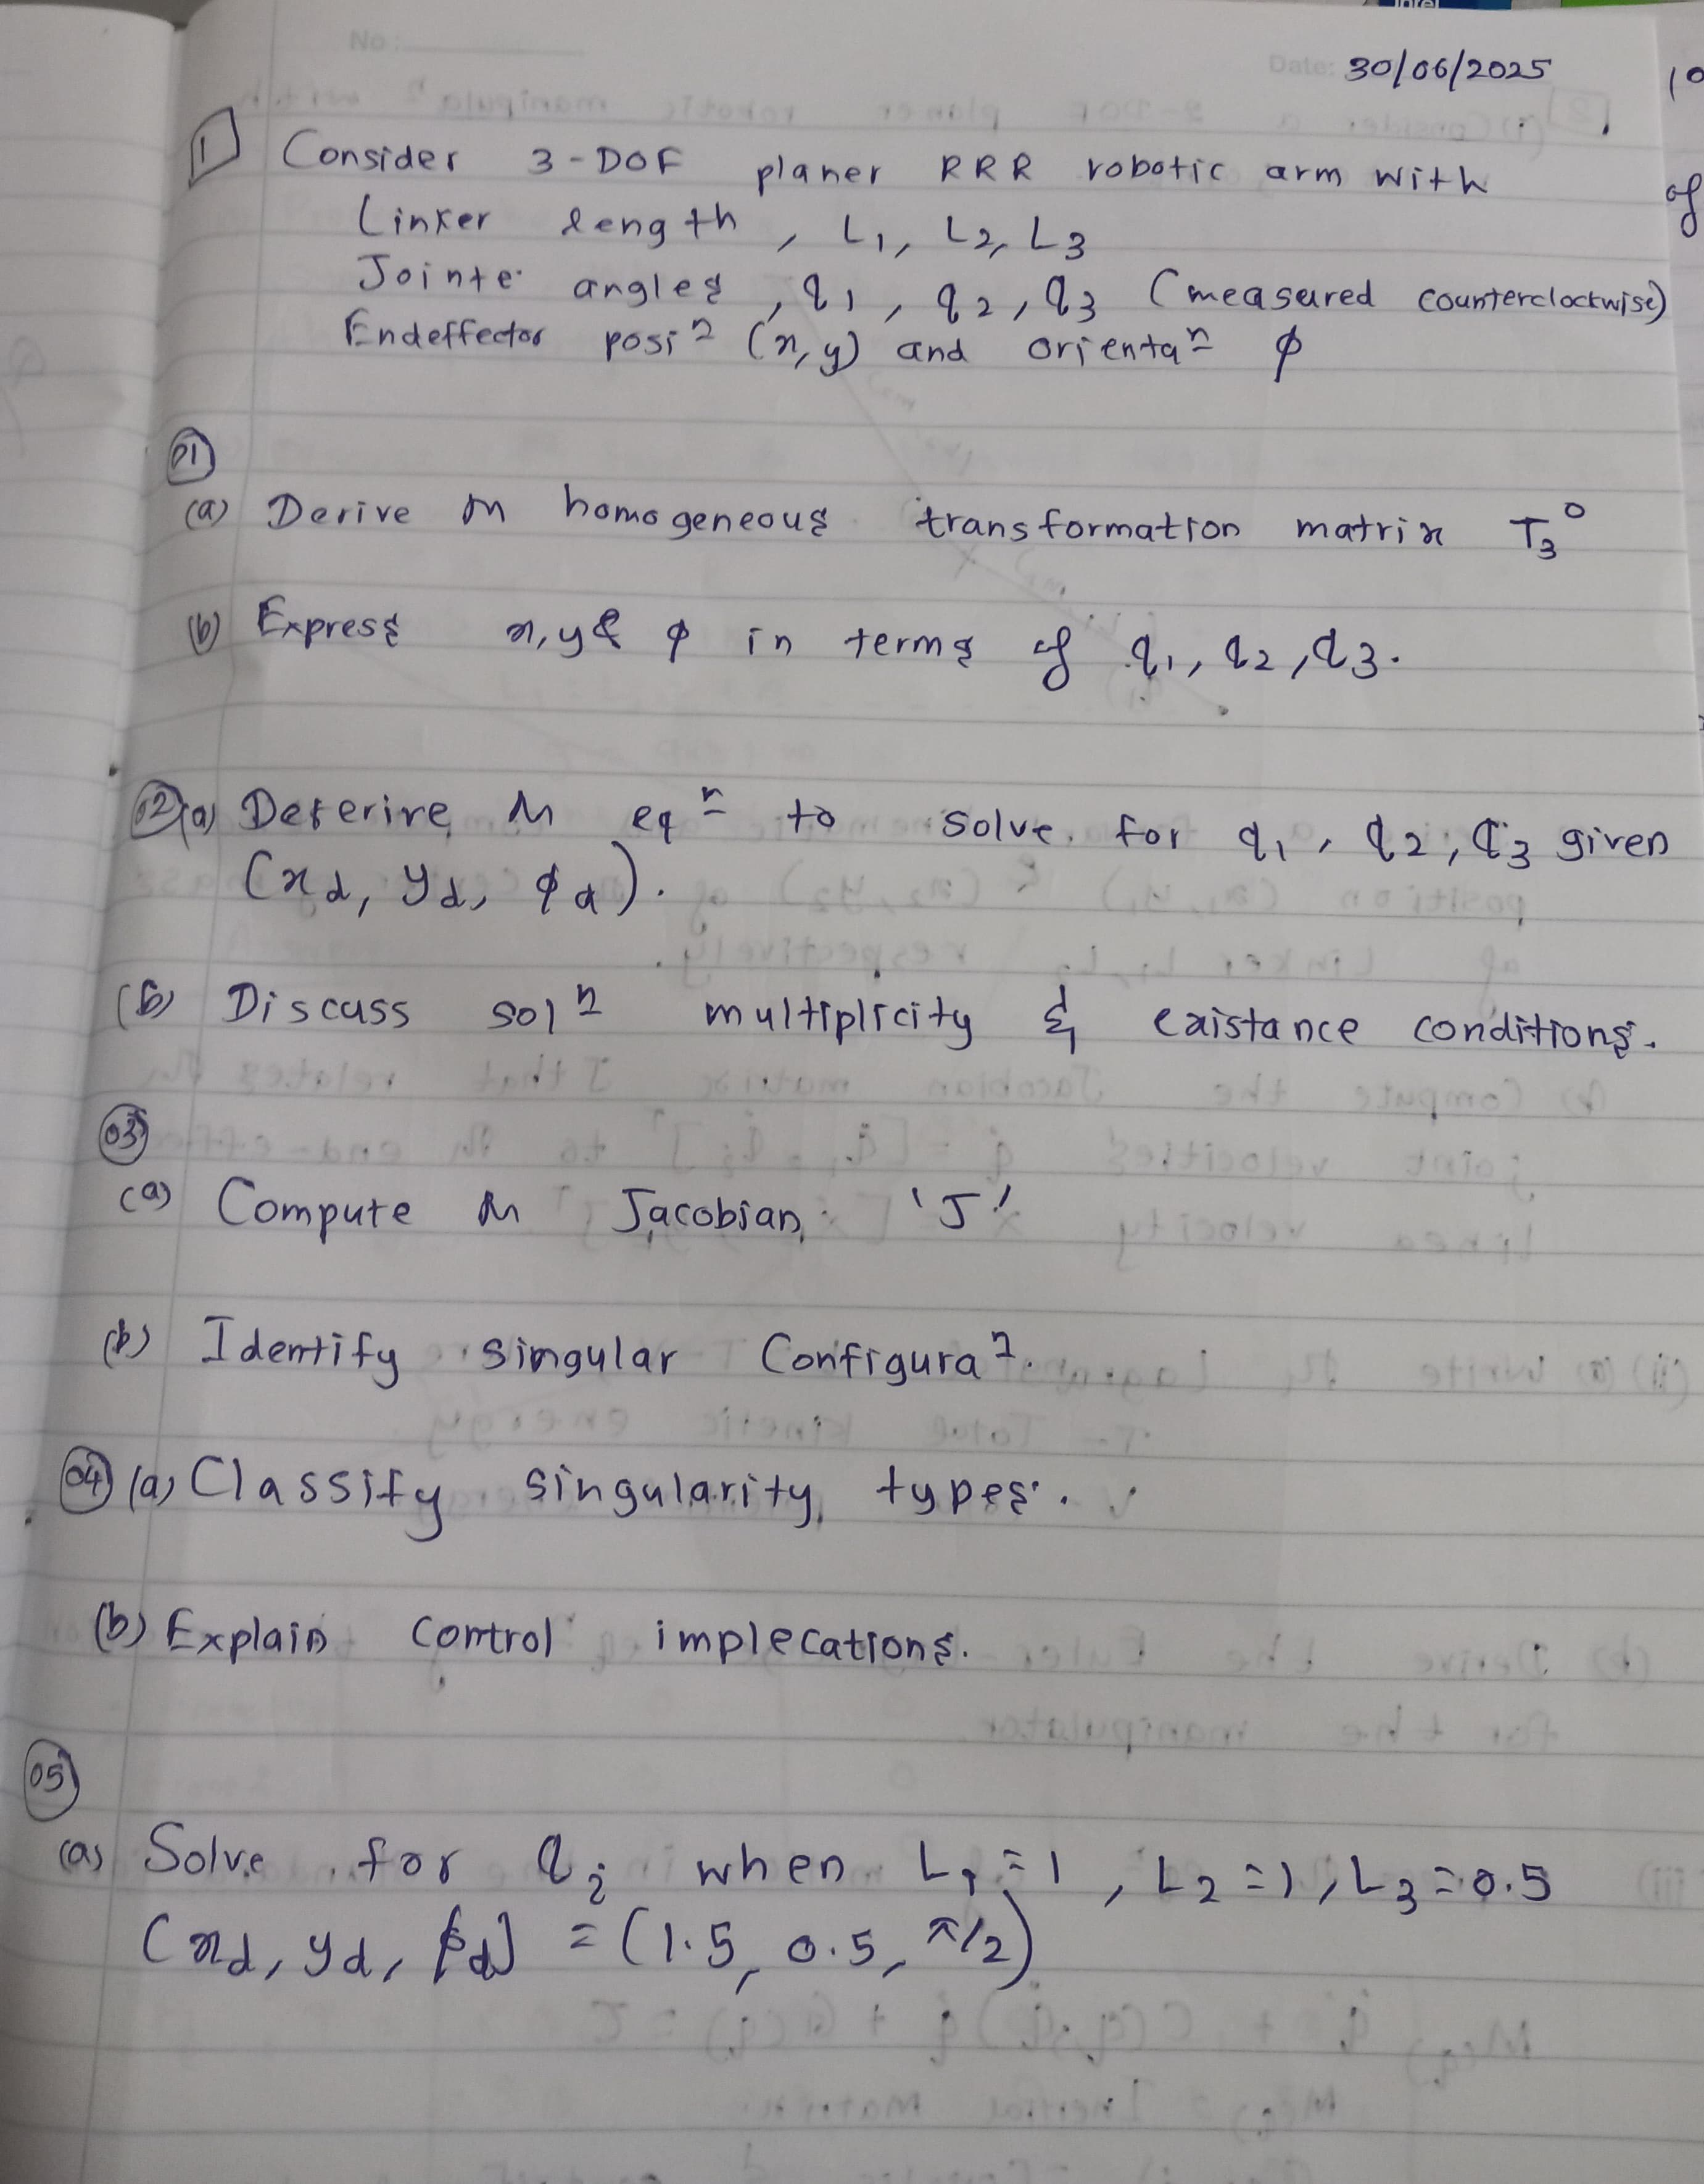 No:
Date: 30/06/2025
1 Consider 3-DOF planer RRR robotic arm with
Linker length, L₁, L₂, L₃
Jointe angles, q₁, q₂, q₃ (measured counterclockwise)
Endeffector posiⁿ (x, y) and orientaⁿ ϕ
01
(a) Derive homogeneous transformation matrix T₃⁰
(b) Express x, y & ϕ in terms of q₁, q₂, q₃.
02 (a) Deterire eqⁿ to solve for q₁, q₂, q₃ given
(x_d, y_d, ϕ_d).
(b) Discuss solⁿ multiplicity & existance conditions.
03
(a) Compute Jacobian 'J'
(b) Identify singular Configuraⁿ.
04 (a) Classify singularity types.
(b) Explain control implecations.
05
(a) Solve for qᵢ when L₁=1, L₂=1, L₃=0.5
(x_d, y_d, ϕ_d) = (1.5, 0.5, π/2)